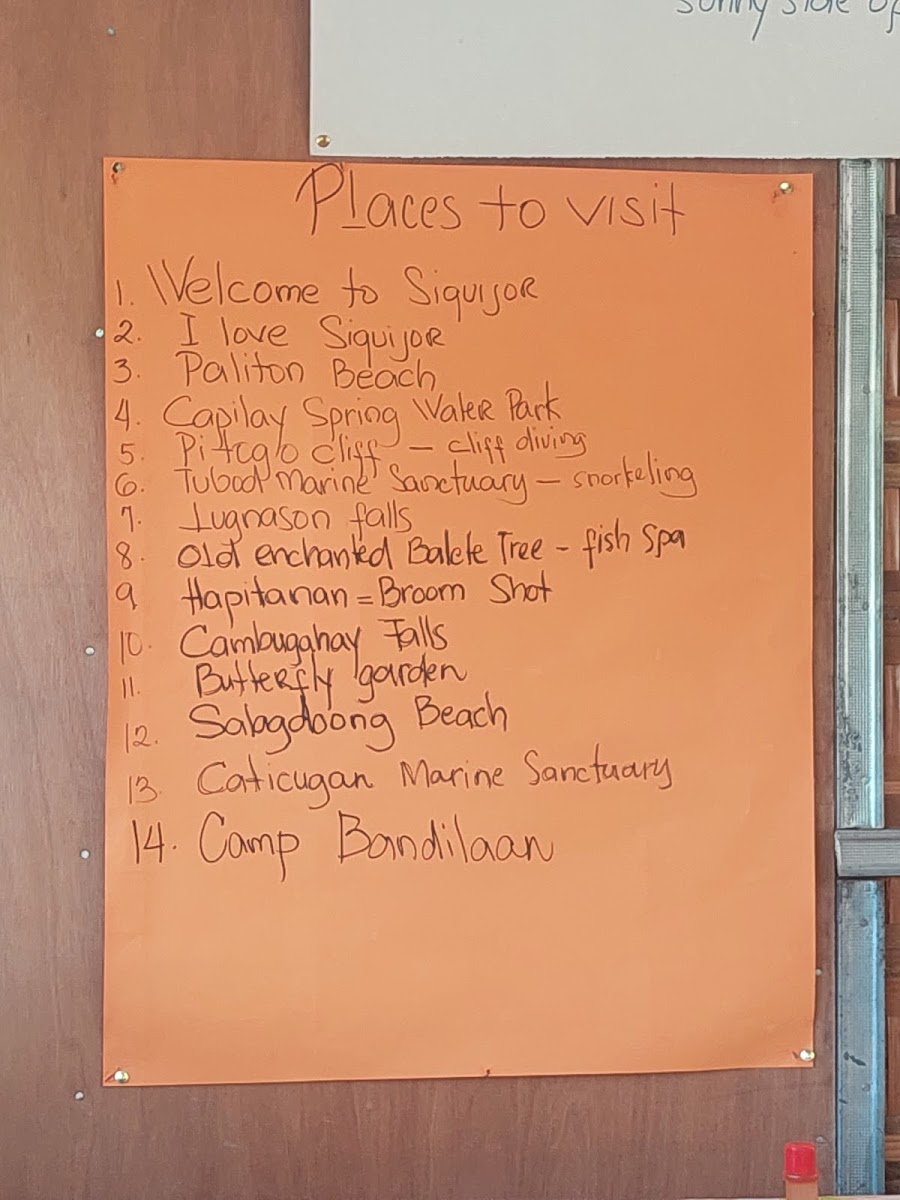 sunny side of
Places to visit
1. Welcome to Siquijor
2. I love Siquijor
3. Paliton Beach
4. Capilay Spring Water Park
5. Pitogo cliff - cliff diving
6. Tubod Marine Sanctuary - snorkeling
7. Lugnason falls
8. Old enchanted Balete Tree - fish spa
9 Hapitanan = Broom Shot
10. Cambugahay Falls
11. Butterfly garden
12. Salagdoong Beach
13. Caticugan Marine Sanctuary
14. Camp Bandilaan